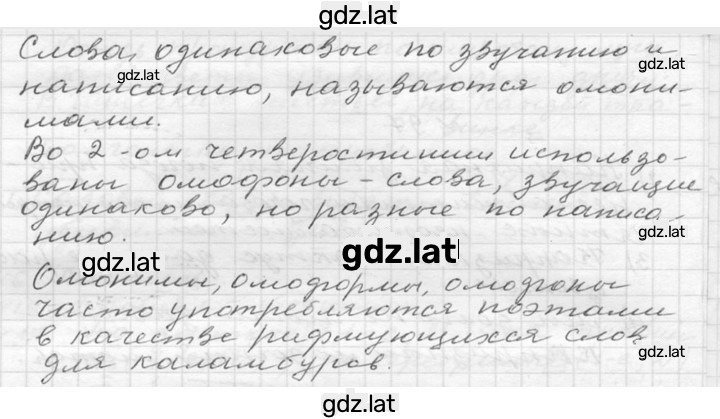 gdz.lat
Слова, одинаковые по звучанию и
gdz.lat
gdz.lat
написанию, называются омони-
мами.
Во 2-ом четверостишии использо-
ваны омофоны - слова, звучащие
одинаково, но разные по написа-
нию.
gdz.lat
gdz.lat
Омонимы, омоформы, омофоны
часто употребляются поэтами
в качестве рифмующихся слов
gdz.lat
для каламбуров.
gdz.lat